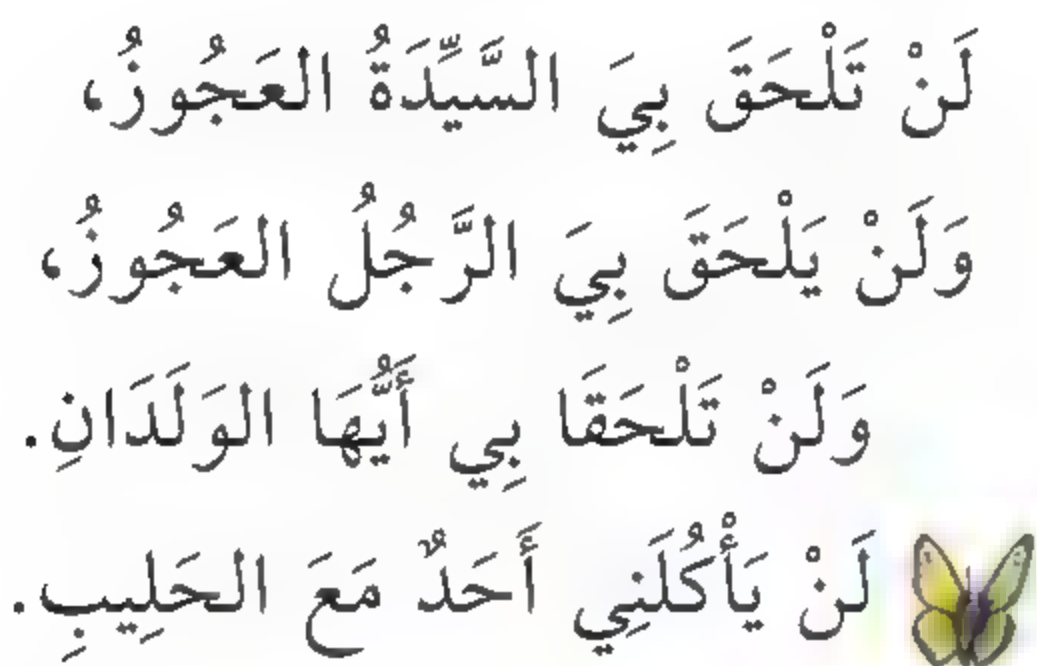 لَنْ تَلْحَقَ بِيَ السَّيِّدَةُ العَجُوزُ،
وَلَنْ يَلْحَقَ بِيَ الرَّجُلُ العَجُوزُ،
وَلَنْ تَلْحَقَا بِي أَيُّهَا الوَلَدَانِ.
لَنْ يَأْكُلَنِي أَحَدٌ مَعَ الحَلِيبِ.